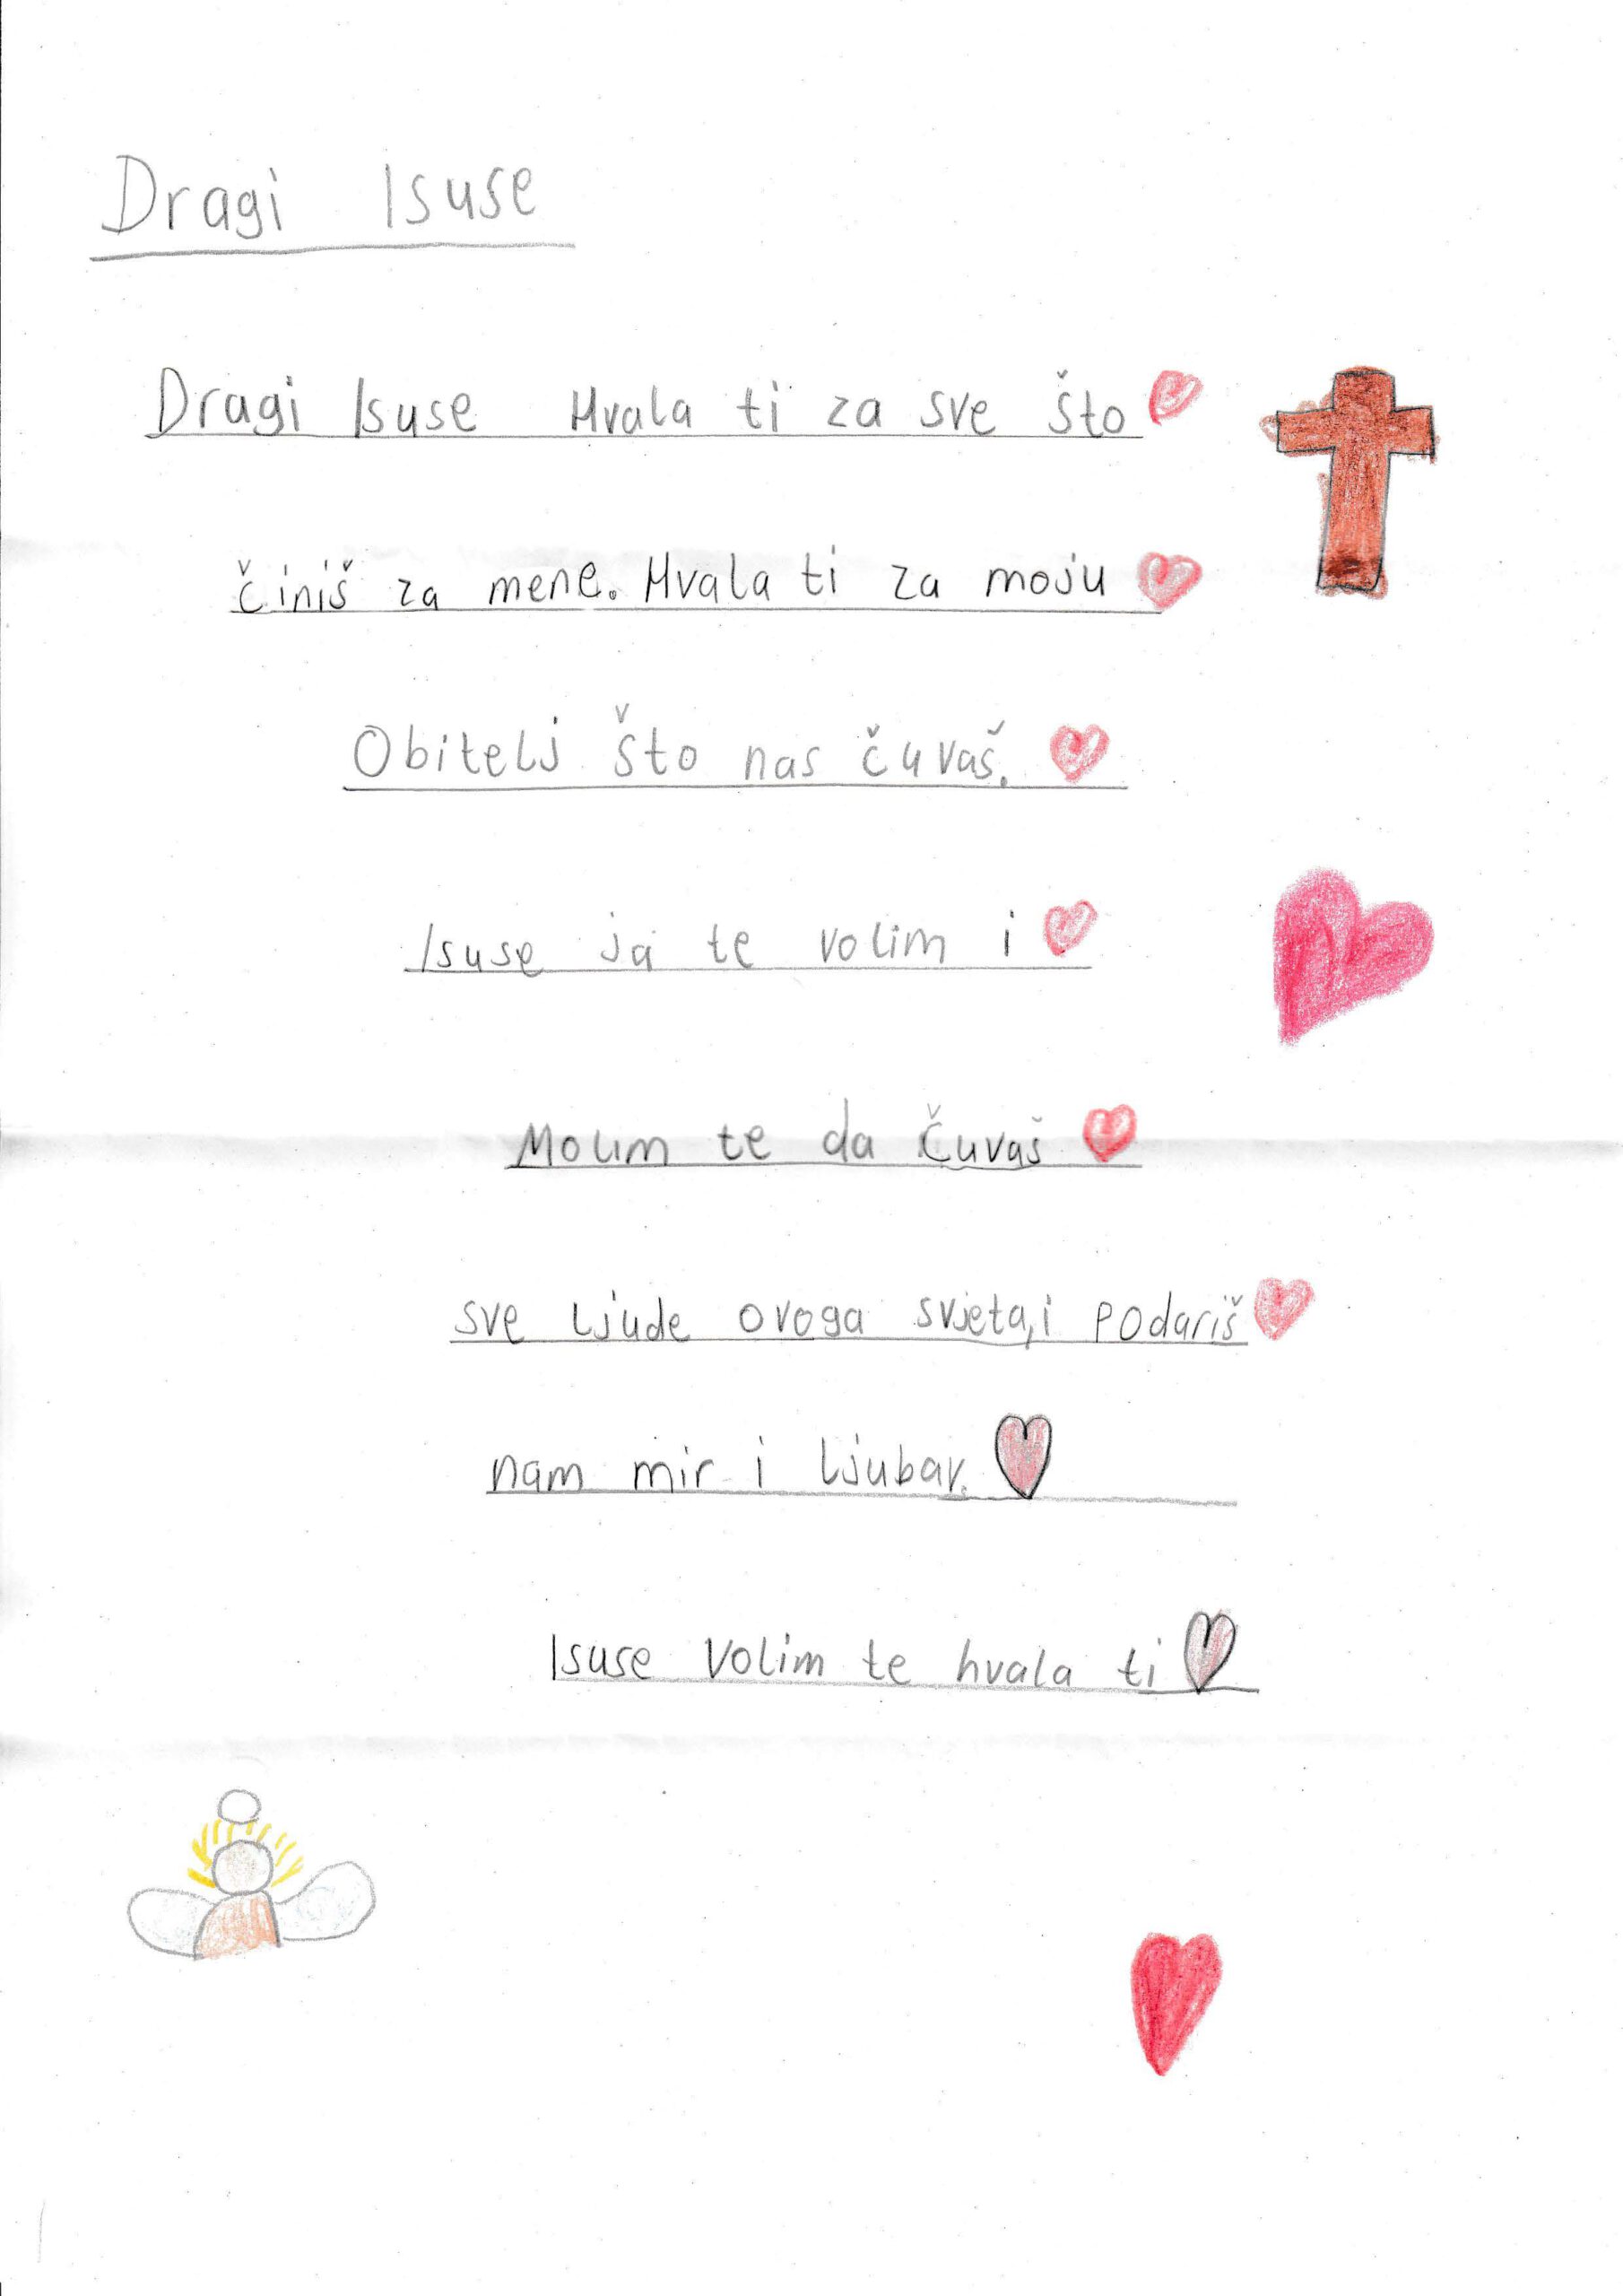 Dragi Isuse
Dragi Isuse Hvala ti za sve što
činiš za mene. Hvala ti za moju
Obitelj što nas čuvaš.
Isuse ja te volim i
Molim te da Čuvaš
sve ljude ovoga svjeta, i podariš
nam mir i ljubav.
Isuse Volim te hvala ti